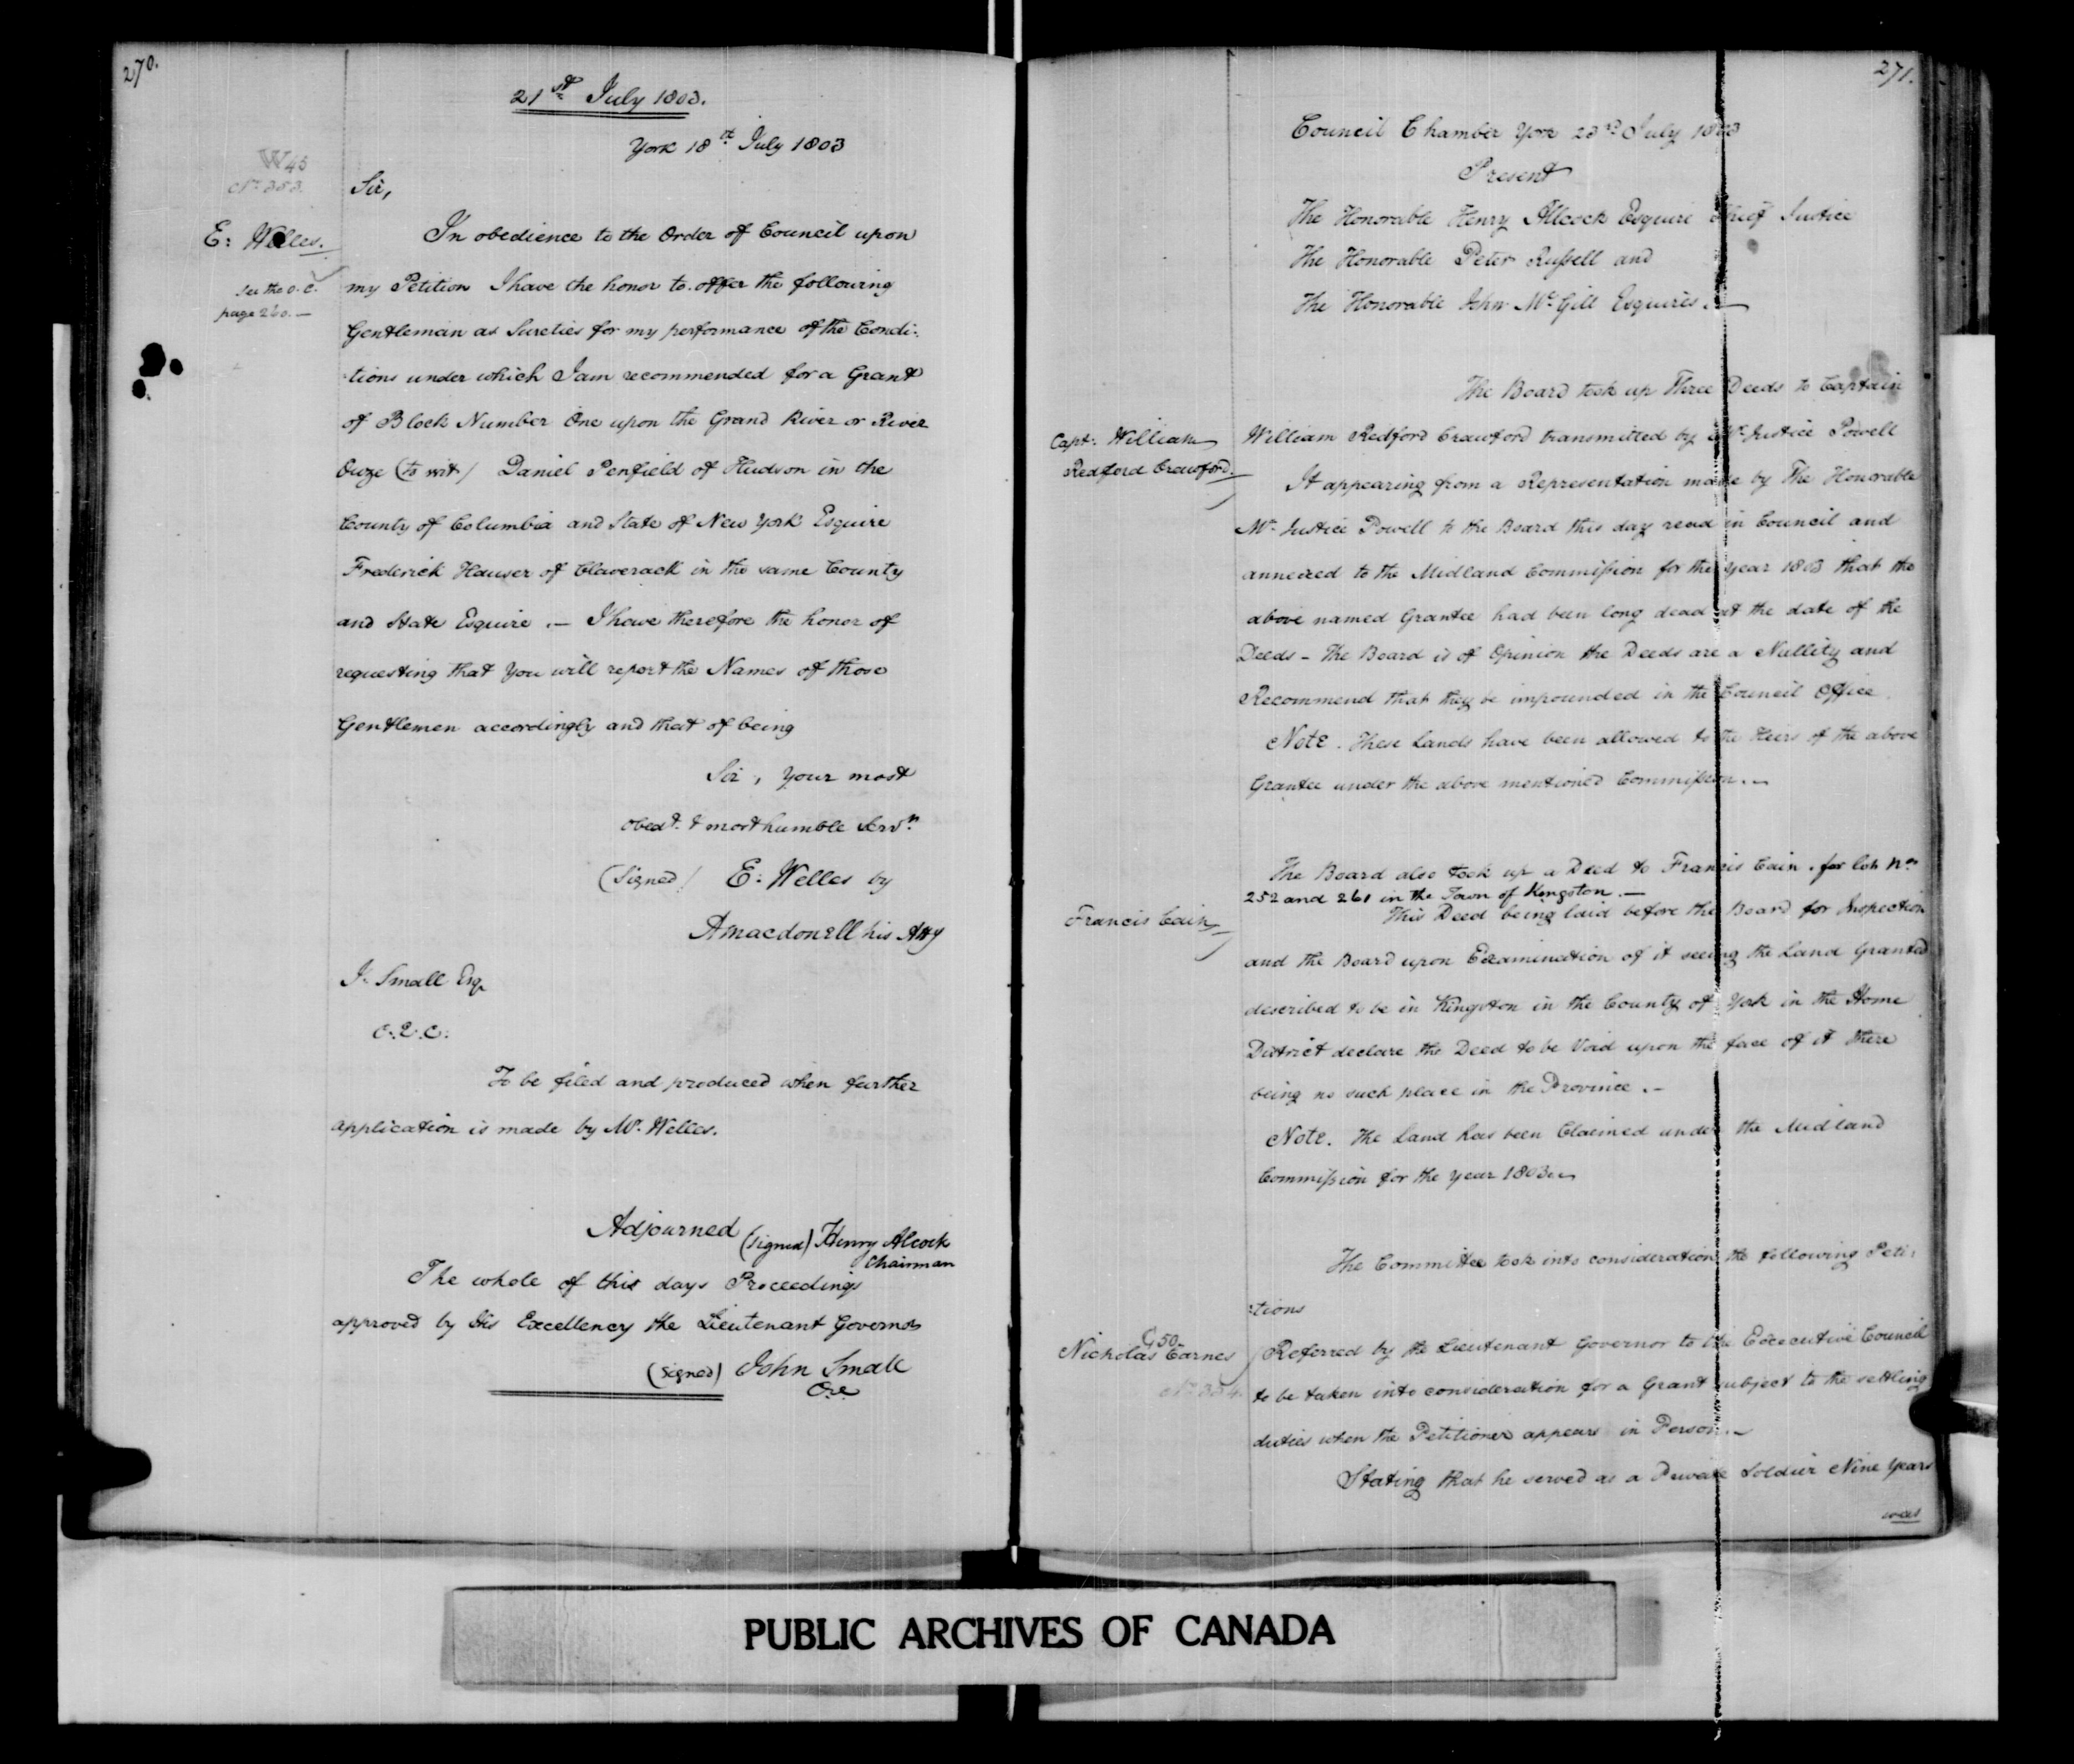 270.
21st July 1803.
York 18th July 1803
W 45
No 353.
Sir,
E: Welles.
see the O.C.
page 260.—
In obedience to the Order of Council upon
my Petition I have the honor to offer the following
Gentleman as Sureties for my performance of the Condi:
:tions under which I am recommended for a Grant
of Block Number One upon the Grand River or River
Ouze (to wit) Daniel Penfield of Hudson in the
County of Columbia and State of New York Esquire
Frederick Hauser of Claverack in the same County
and State Esquire .— I have therefore the honor of
requesting that You will report the Names of those
Gentlemen accordingly and that of being
Sir, Your most
obedt. & most humble Servt.
(Signed) E: Welles by
A Macdonell his Atty
J. Small Esq.
C.E.C.
To be filed and produced when further
application is made by Mr. Welles.
Adjourned
(signed) Henry Alcock
Chairman
The whole of this days Proceedings
approved by His Excellency the Lieutenant Governor
(signed) John Small
271.
Council Chamber York 23rd July 1803
Present
The Honorable Henry Allcock Esquire Chief Justice
The Honorable Peter Russell and
The Honorable John McGill Esquires.—
The Board took up Three Deeds to Captain
Capt: William
Redford Crawford.
William Redford Crawford transmitted by Mr. Justice Powell
It appearing from a Representation made by The Honorable
Mr. Justice Powell to the Board this day read in Council and
annexed to the Midland Commission for the year 1803 that the
above named Grantee had been long dead at the date of the
Deeds – The Board is of Opinion the Deeds are a Nullity and
Recommend that they be impounded in the Council Office.
Note. These Lands have been allowed to the Heirs of the above
Grantee under the above mentioned Commission.—
The Board also took up a Deed to Francis Cain. for lots Nos
252 and 261 in the Town of Kingston.—
Francis Cain
This Deed being laid before the Board for Inspection
and the Board upon Examination of it seeing the Land Granted
described to be in Kingston in the County of York in the Home
District declare the Deed to be Void upon the face of it there
being no such place in the Province.—
Note. The Land has been Claimed under the Midland
Commission for the year 1803.
The Committee took into consideration the following Peti:
:tions
C 50
Nicholas Carnes
No 354.
Referred by the Lieutenant Governor to the Executive Council
to be taken into consideration for a Grant subject to the settling
duties when the Petitioner appears in Person.—
Stating that he served as a Private Soldier Nine Years
was
PUBLIC ARCHIVES OF CANADA